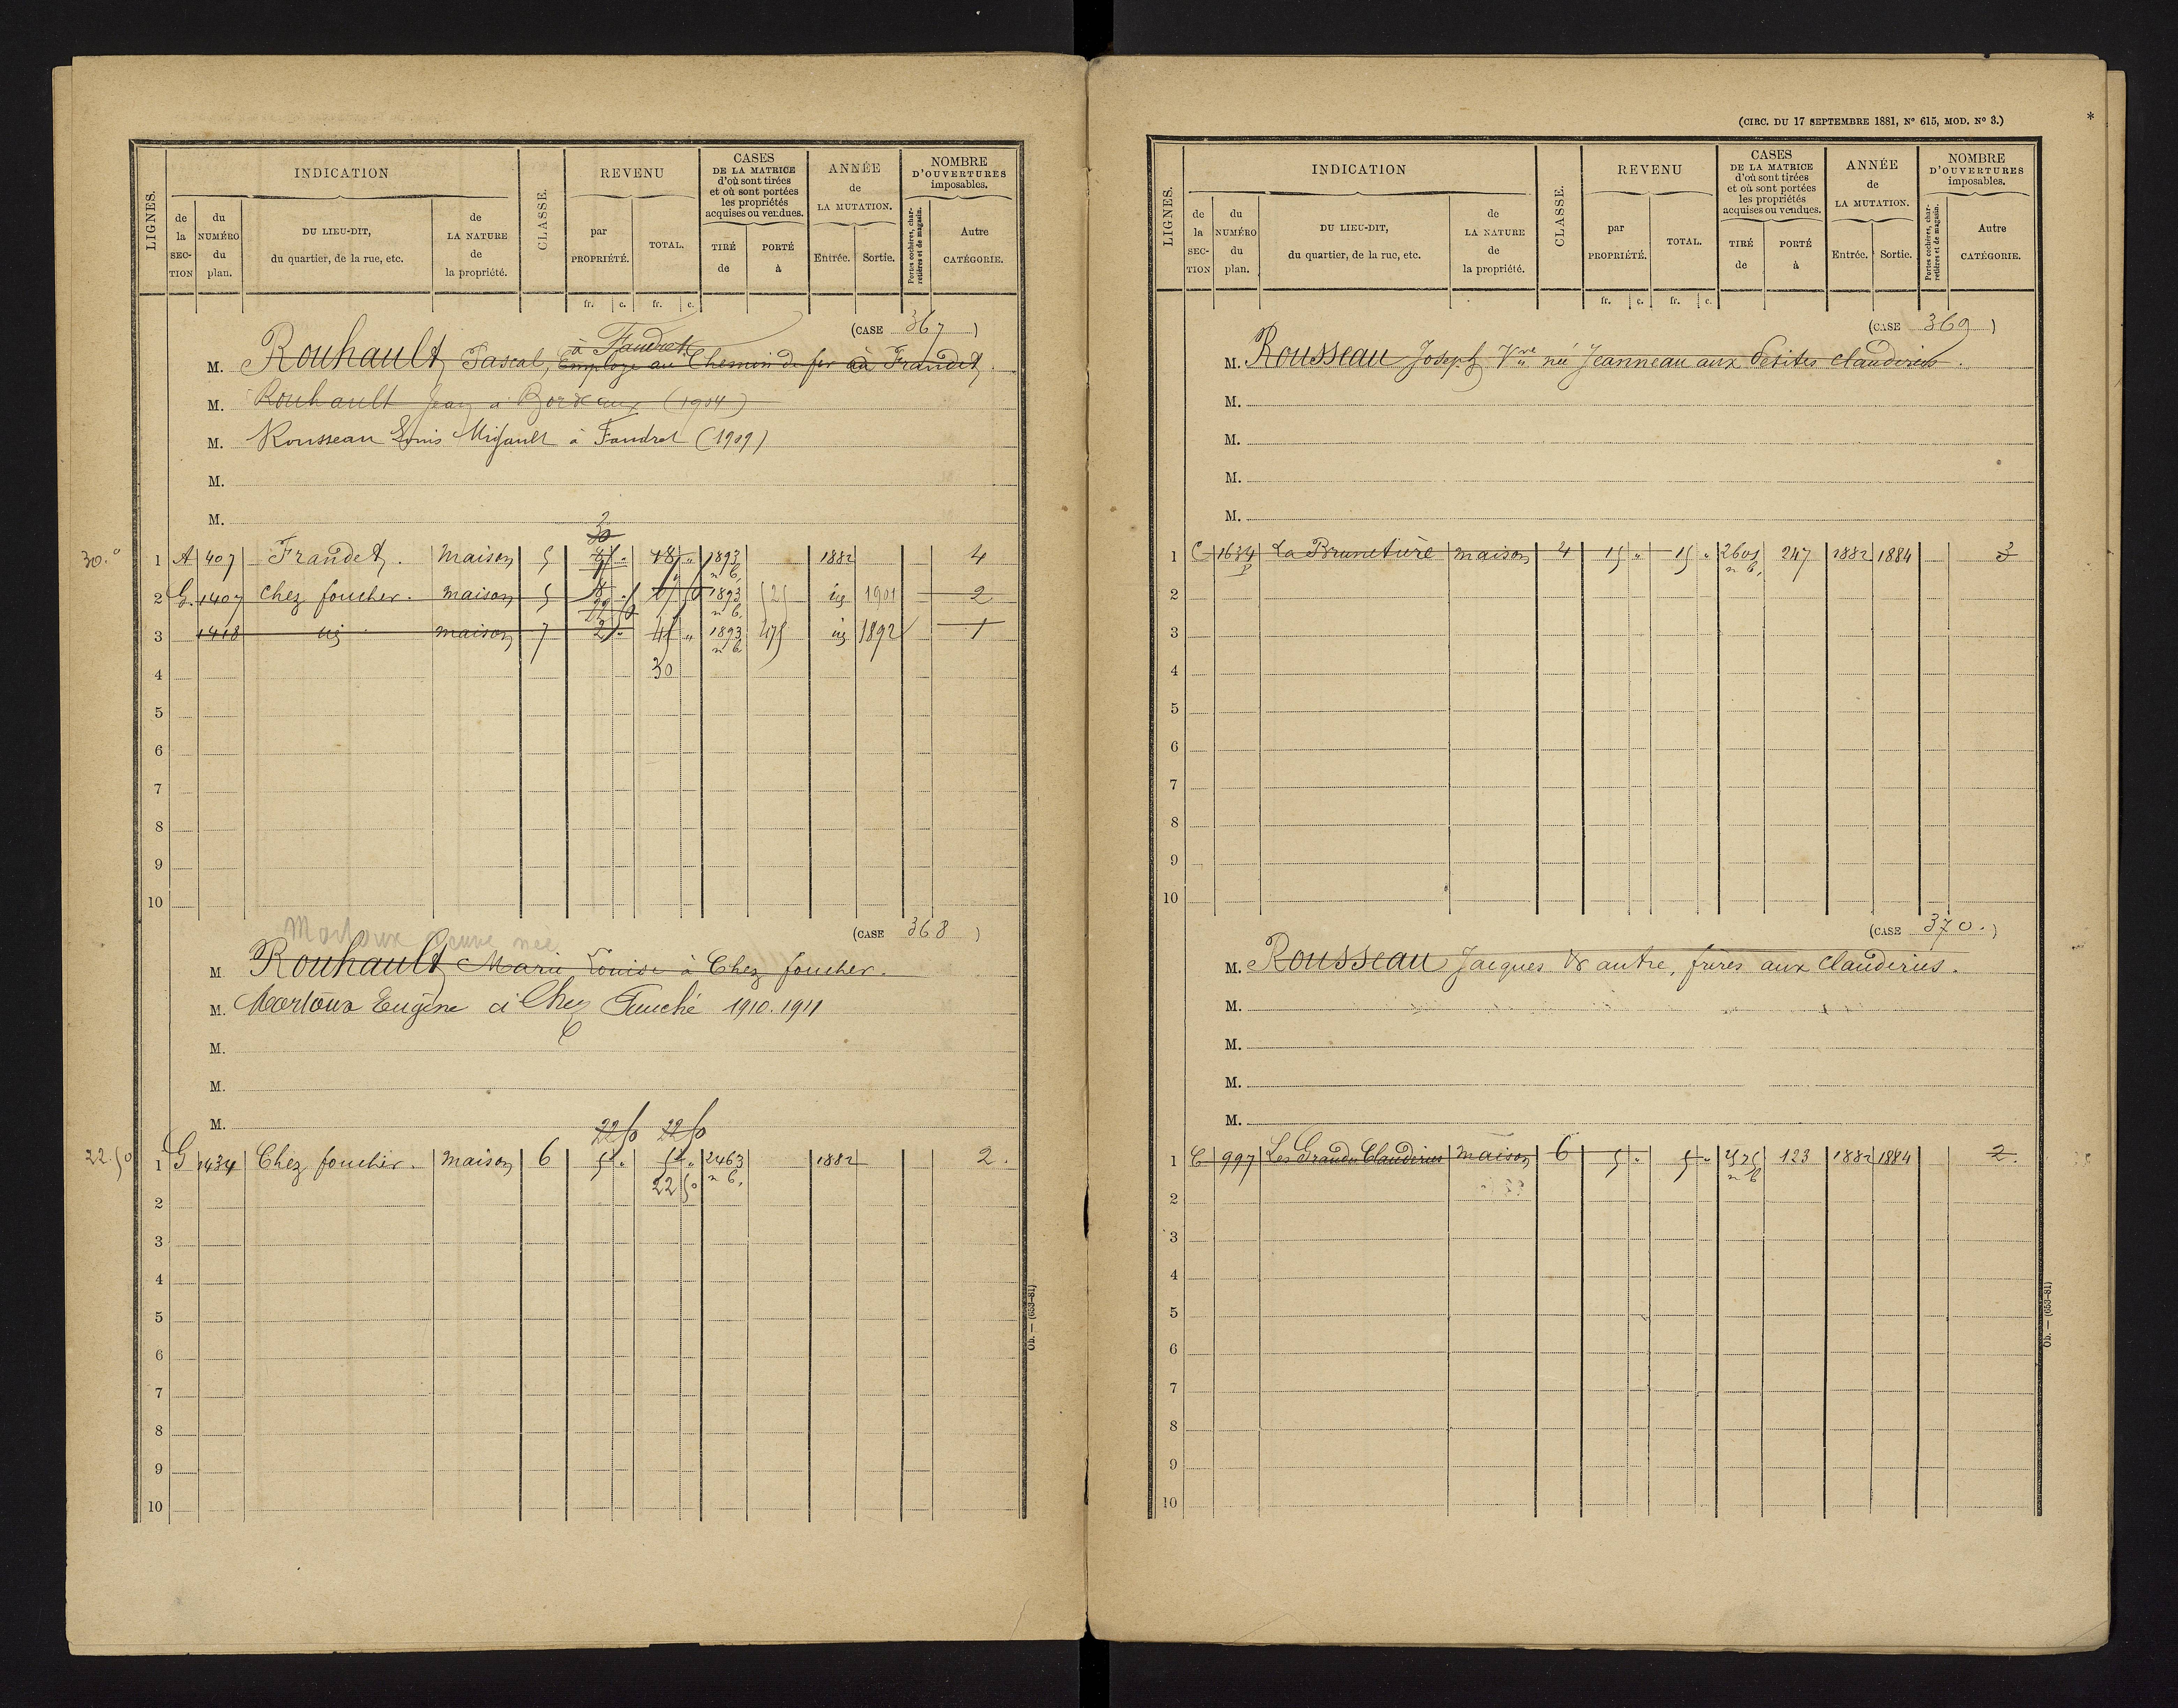 LIGNES.
INDICATION
de la SECTION
du NUMÉRO du plan.
DU LIEU-DIT, du quartier, de la rue, etc.
de LA NATURE de la propriété.
CLASSE.
REVENU
par PROPRIÉTÉ.
TOTAL.
CASES DE LA MATRICE d'où sont tirées et où sont portées les propriétés acquises ou vendues.
TIRÉ de
PORTÉ à
ANNÉE de LA MUTATION.
Entrée.
Sortie.
NOMBRE D'OUVERTURES imposables.
Portes cochères, charretières et de magasin.
Autre CATÉGORIE.
fr. c. fr. c.
(CASE 367)
à Faudret
M. Rouhault Pascal, Employé au Chemin de fer à Fraudet.
M. Rouhault Jean à Bordeaux (1904)
M. Rousseau Louis Migault à Faudret (1909)
M.
M.
30
30.
1 A 407 Fraudet. maison 5 18 " 1893 n b, 1882 4
2 G. 1407 Chez foucher. maison 5 1893 n b, 525 id 1901 2
3 1418 id maison 7 45 " 1893 n b 475 id 1892 1
4 30
5
6
7
8
9
10
(CASE 368)
Martoux veuve née
M. Rouhault Marie Louise à Chez foucher.
M. Martoux Eugène à Chez Fouché 1910. 1911
M.
M.
M.
22 50 22 50
22.50
1 G 1434 Chez foucher. maison 6 2463 n b, 1882 2.
2 22 50
3
4
5
6
7
8
9
10
Ob. — (653-81)
(CIRC. DU 17 SEPTEMBRE 1881, N° 615, MOD. N° 3.)
*
LIGNES.
INDICATION
de la SECTION
du NUMÉRO du plan.
DU LIEU-DIT, du quartier, de la rue, etc.
de LA NATURE de la propriété.
CLASSE.
REVENU
par PROPRIÉTÉ.
TOTAL.
CASES DE LA MATRICE d'où sont tirées et où sont portées les propriétés acquises ou vendues.
TIRÉ de
PORTÉ à
ANNÉE de LA MUTATION.
Entrée.
Sortie.
NOMBRE D'OUVERTURES imposables.
Portes cochères, charretières et de magasin.
Autre CATÉGORIE.
fr. c. fr. c.
(CASE 369)
M. Rousseau Joseph Vve née Jeanneau aux Petites Clauderies.
M.
M.
M.
M.
1 C 1634 p La Brunetière maison 4 15 " 15 " 2601 n b, 247 1882 1884 3
2
3
4
5
6
7
8
9
10
(CASE 370.)
M. Rousseau Jacques & autre, frères aux Clauderies.
M.
M.
M.
M.
1 C 997 Les Grandes Clauderies maison 6 5 " 5 " 2525 n b 123 1882 1884 2.
2
3
4
5
6
7
8
9
10
Ob. — (653-81)